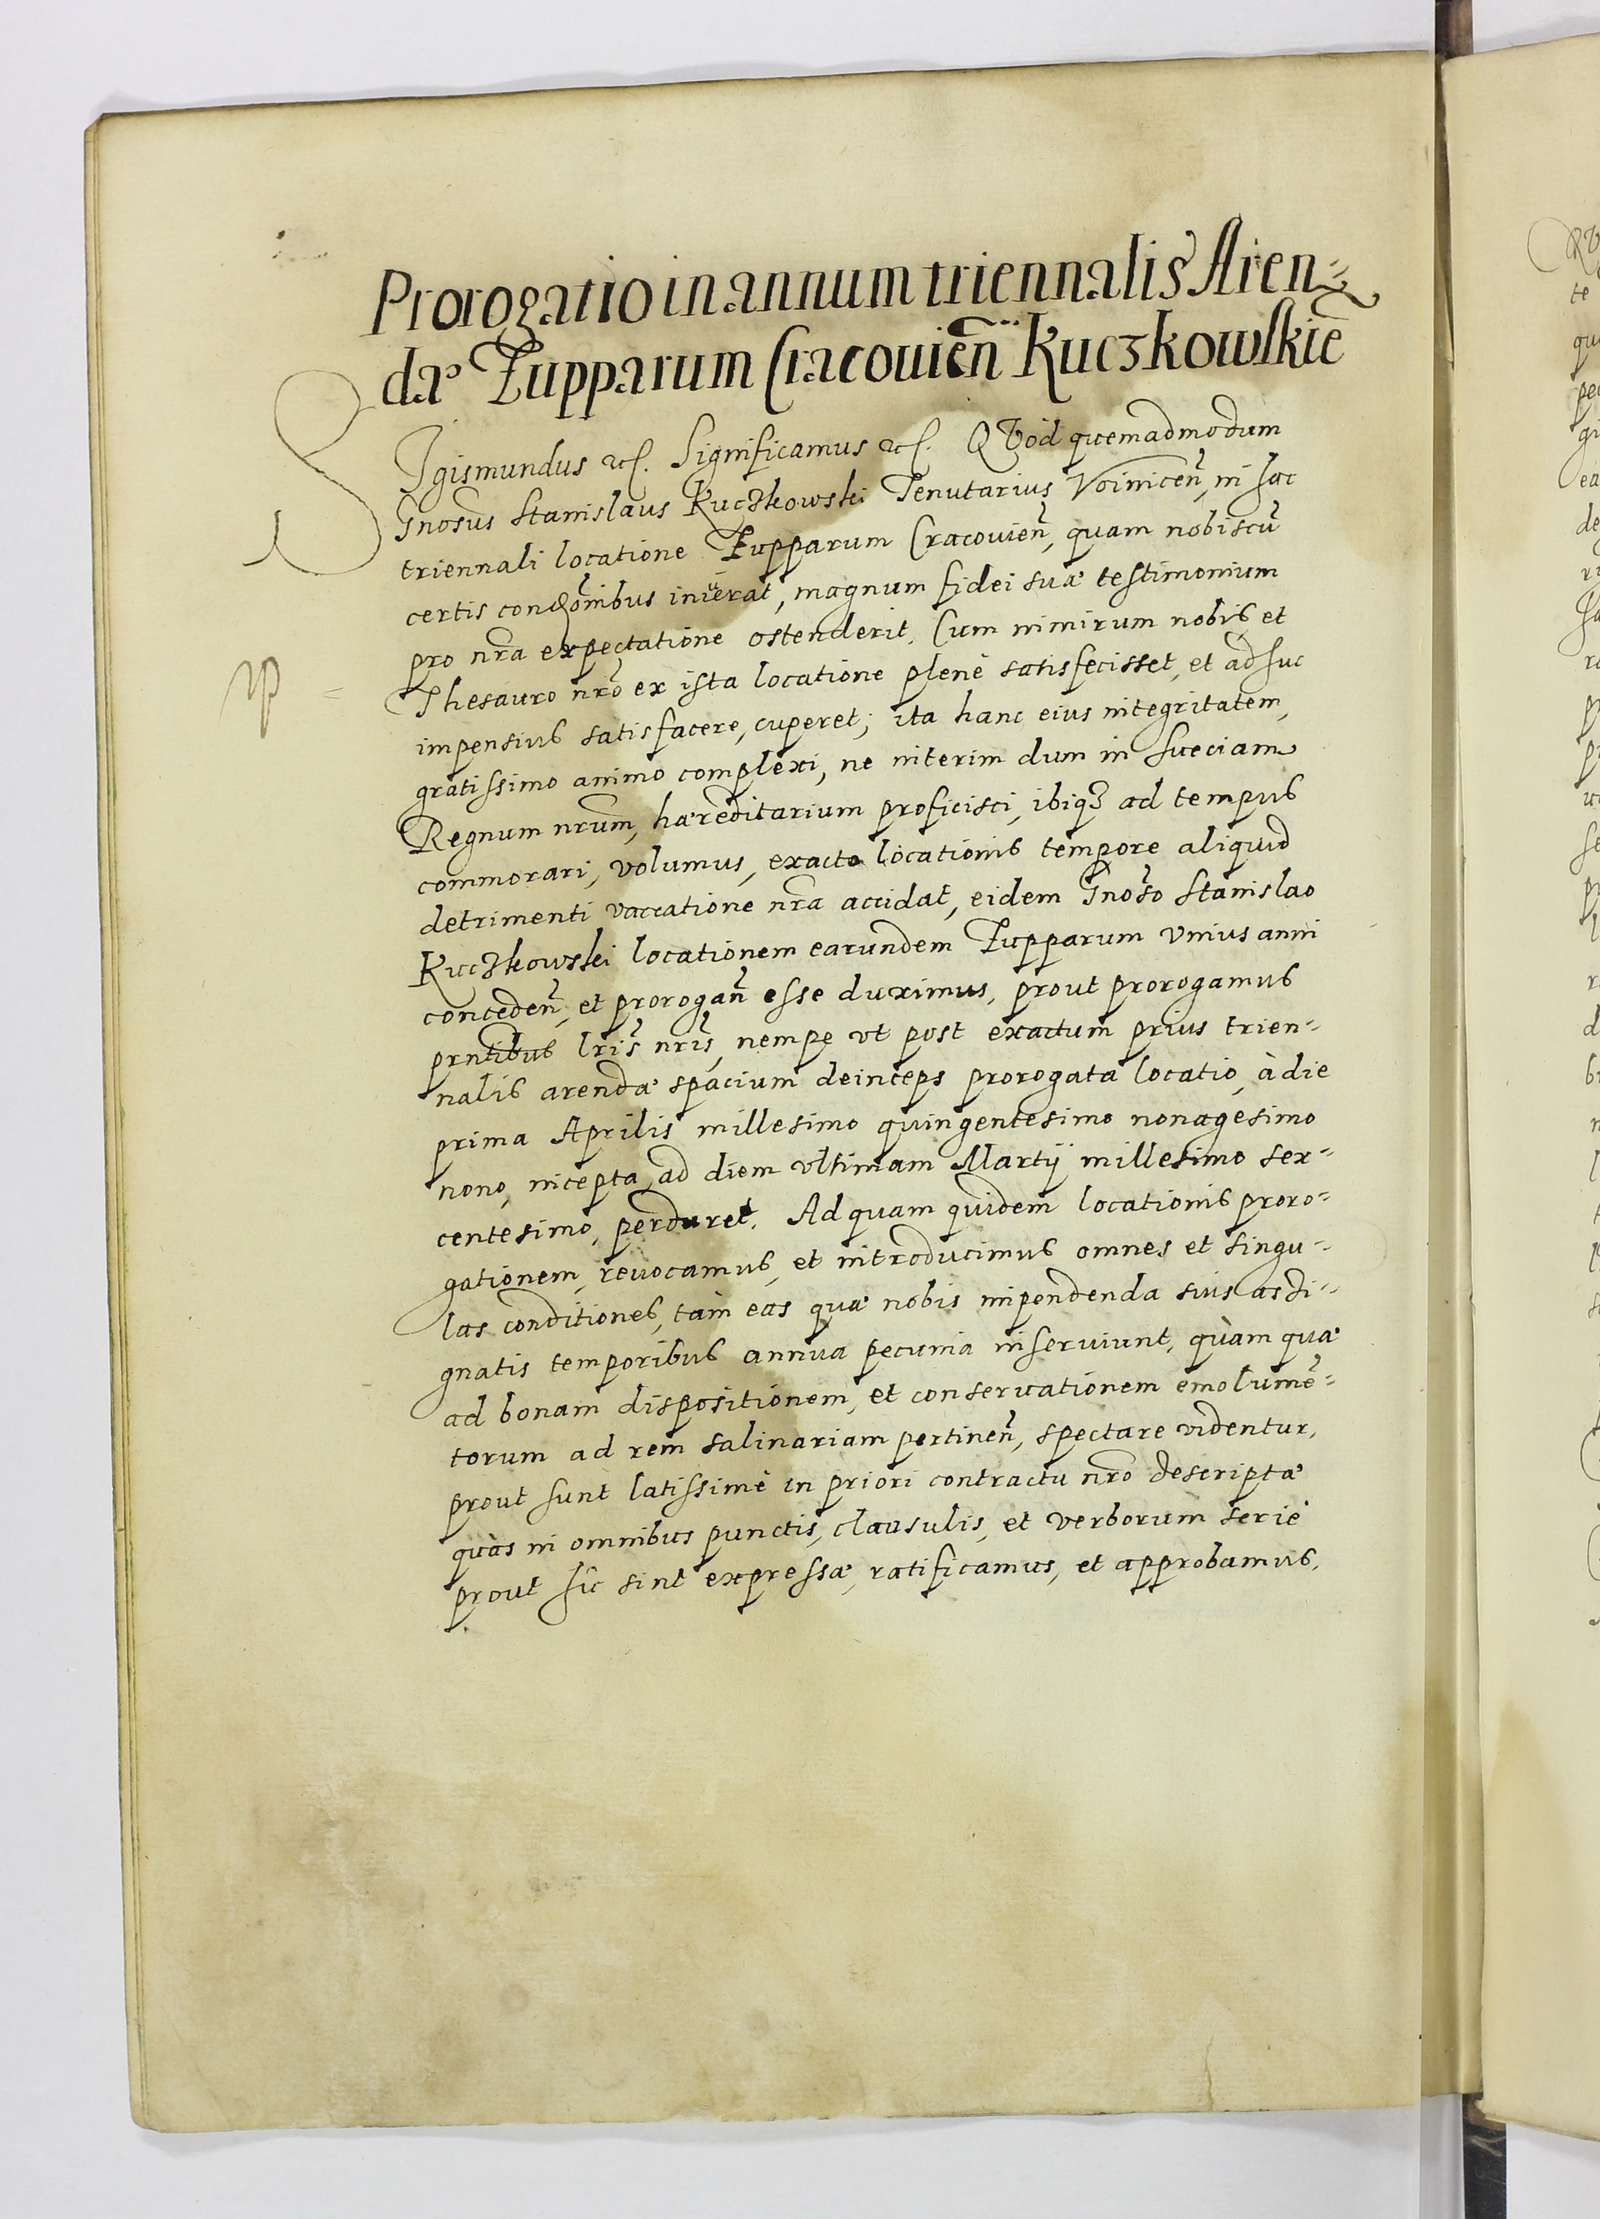 Prorogatio in annum triennalis Aren=
dæ Zupparum Cracouień Kuczkowskie͂
SIgismundus etc. Significamus etc. QVod quemadmodum
Gnosus Stanislaus Kuczkowski Tenutarius Voinicen͂, in hac
triennali locatione Zupparum Cracouien͂, quam nobiscu͂
certis condo͂nibus inierat, magnum fidei suæ testimonium
pro nr͂a expectatione ostenderit. Cum nimirum nobis et
Thesauro nr͂o ex ista locatione plenè satisfecisset, et adhuc
impensius satisfacere, cuperet; ita hanc eius integritatem,
gratissimo animo complexi, ne interim dum in Sueciam
Regnum nr͂um, hæreditarium proficisci, ibiq3 ad tempus
commorari, volumus, exacto locationis tempore aliquid
detrimenti vaccatione nr͂a accidat, eidem Gnoso Stanislao
Kuczkowski locationem earundem Zupparum vnius anni
conceden͂, et prorogan͂ esse duximus, prout prorogamus
prntibus lr͂is nr͂is, nempe vt post exactum prius trien=
nalis arendæ spacium deinceps prorogata locatio, à die
prima Aprilis millesimo quingentesimo nonagesimo
nono, incepta, ad diem vltimam Martij millesimo sex=
centesimo, perduret. Ad quam quidem locationis proro=
gationem, reuocamus, et introducimus omnes et singu=
las conditiones, tam eas quæ nobis impendenda suis assi=
gnatis temporibus annua pecunia inseruiunt, quàm quæ
ad bonam dispositionem, et conseruationem emolume͂=
torum ad rem salinariam pertinen͂, spectare videntur,
prout sunt latissimè in priori contractu nr͂o descriptæ
quàs in omnibus punctis, clausulis, et verborum serie
prout hic sint expressæ, ratificamus, et approbamus,